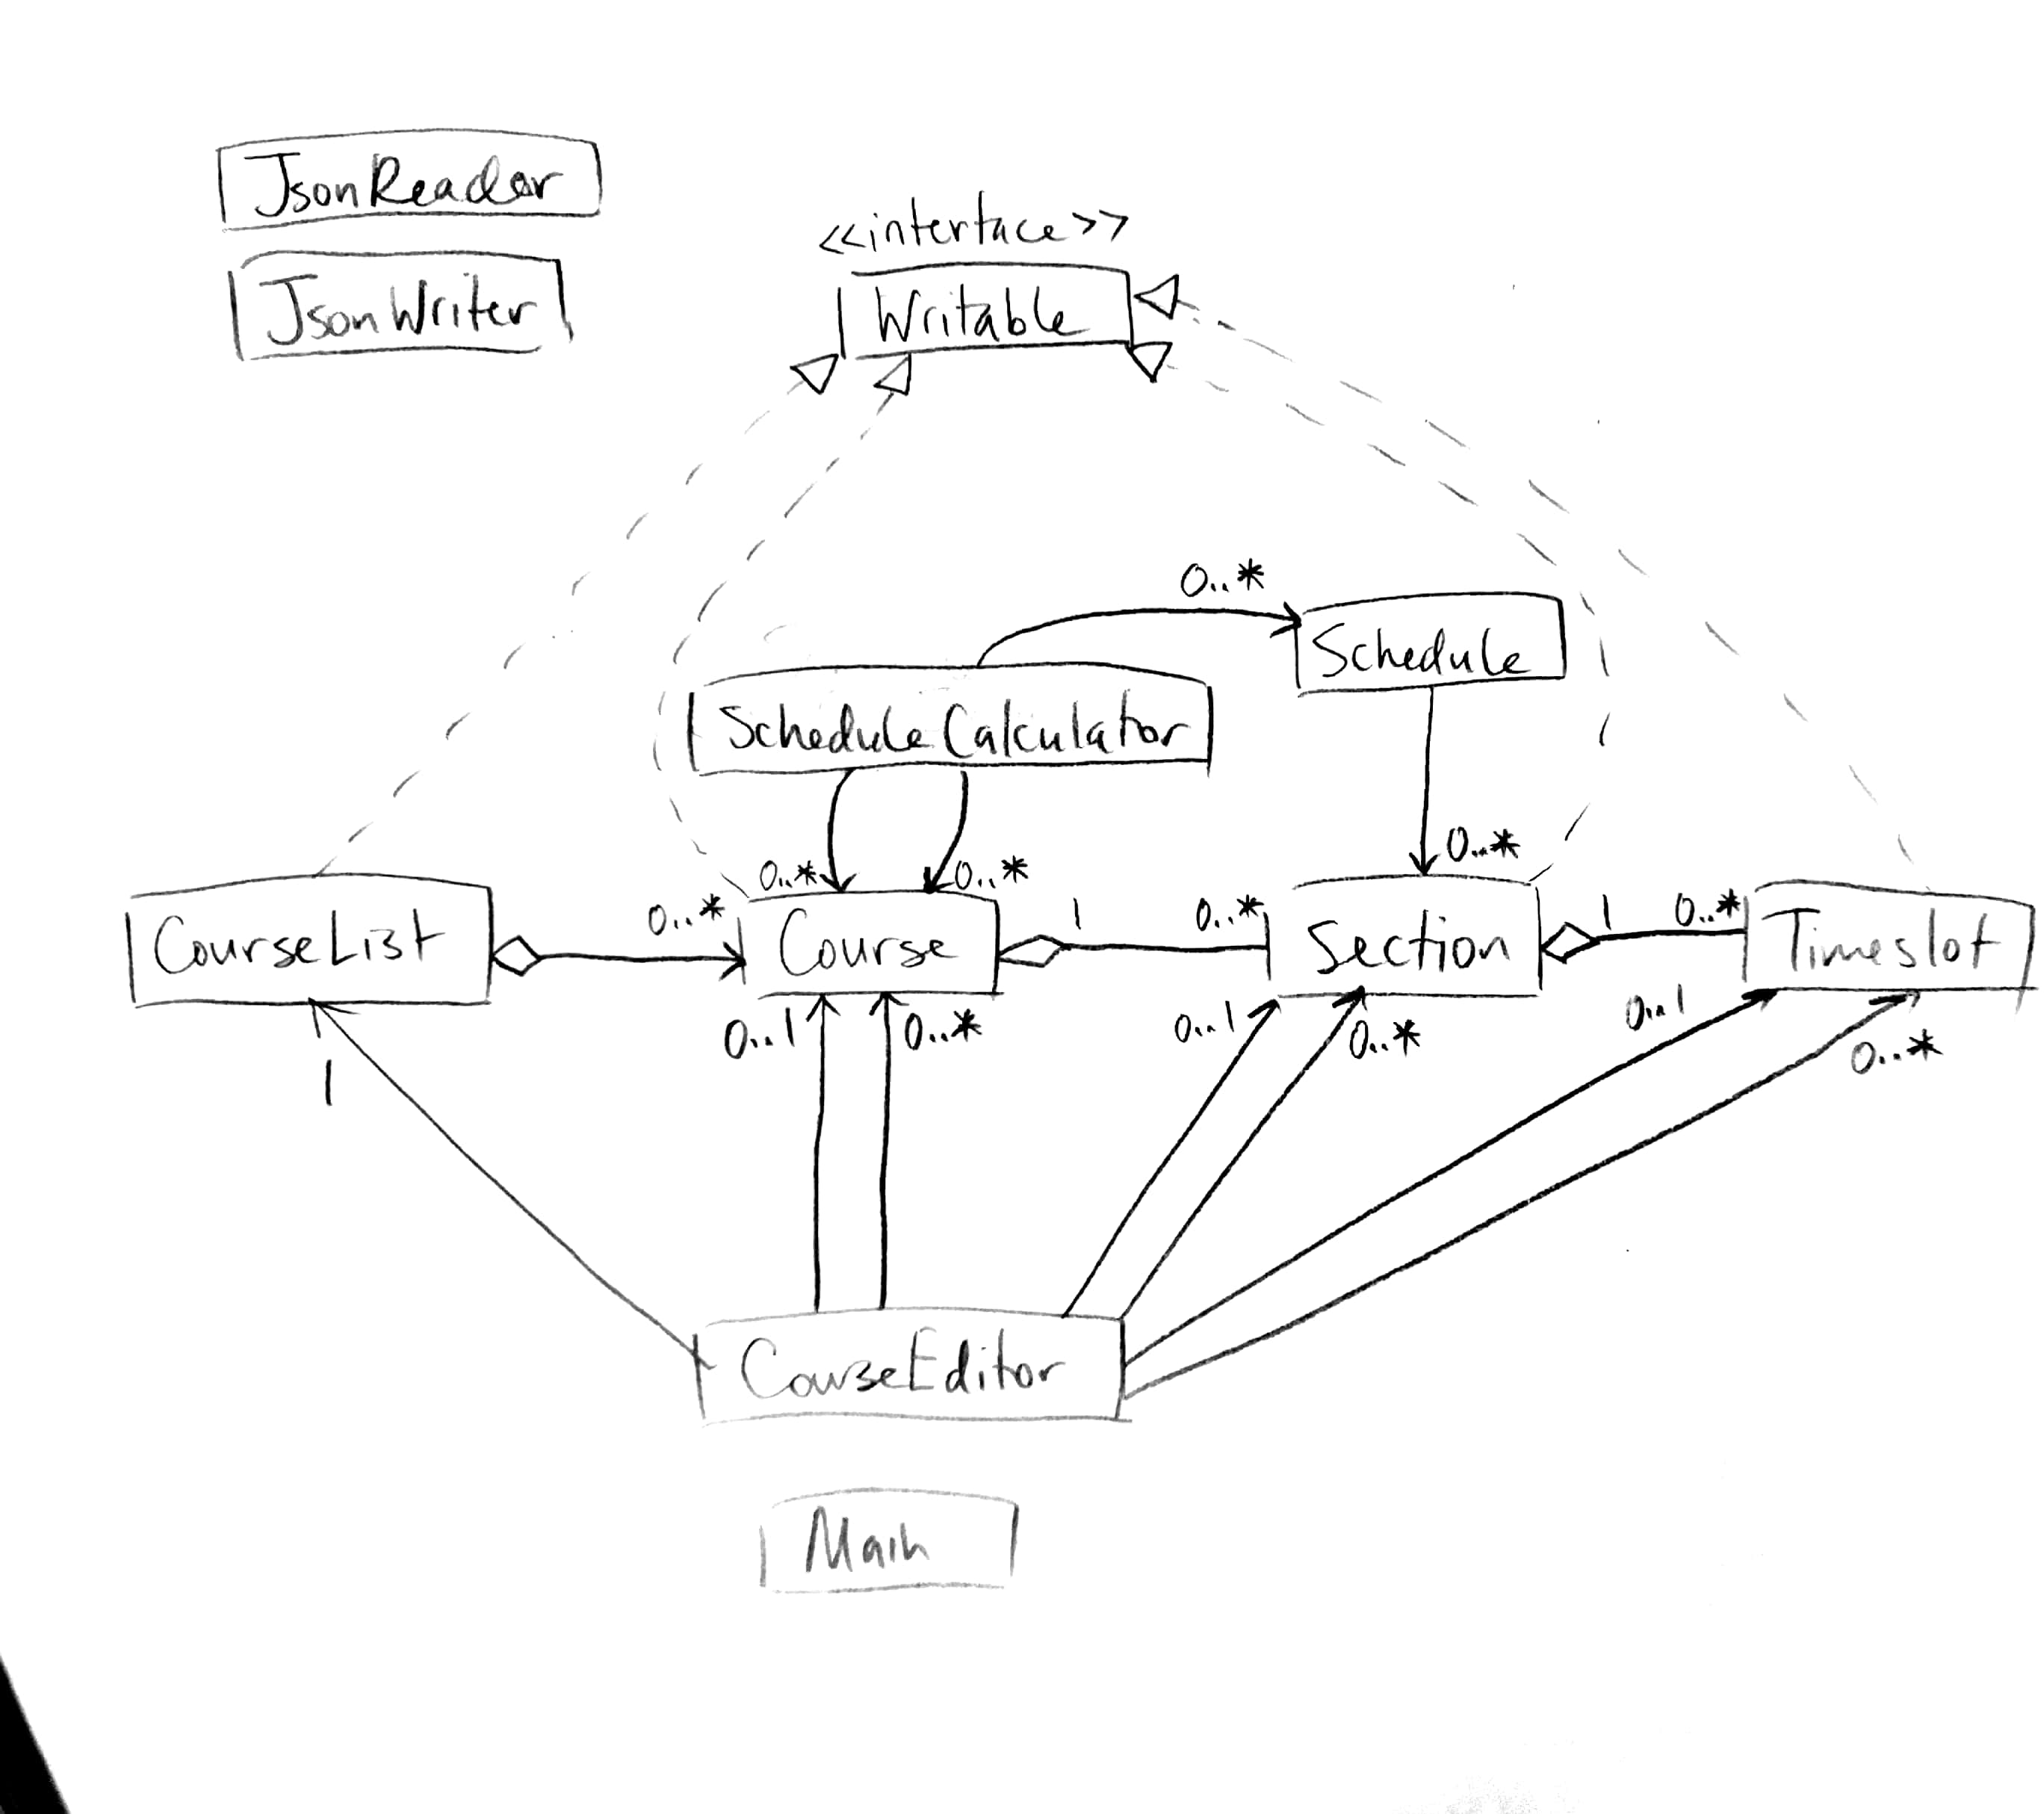 JsonReader
JsonWriter
<<interface>>
Writable
0..*
Schedule
ScheduleCalculator
0..*
0..*
0..*
CourseList
0..*
Course
1
0..*
Section
1
0..*
Timeslot
1
0..1
0..*
0..1
0..*
0..1
0..*
CourseEditor
Main